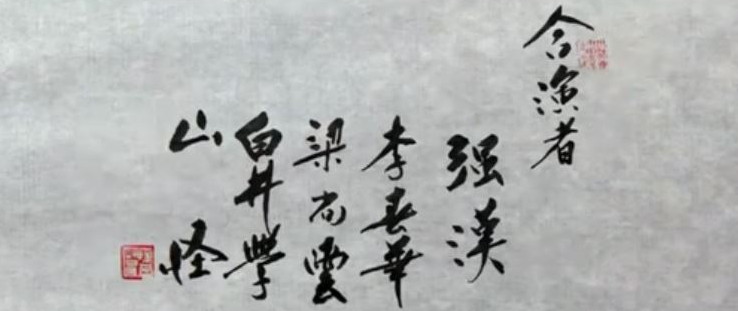 合演者
强漢
李春華
梁尚雲
白井學
山怪